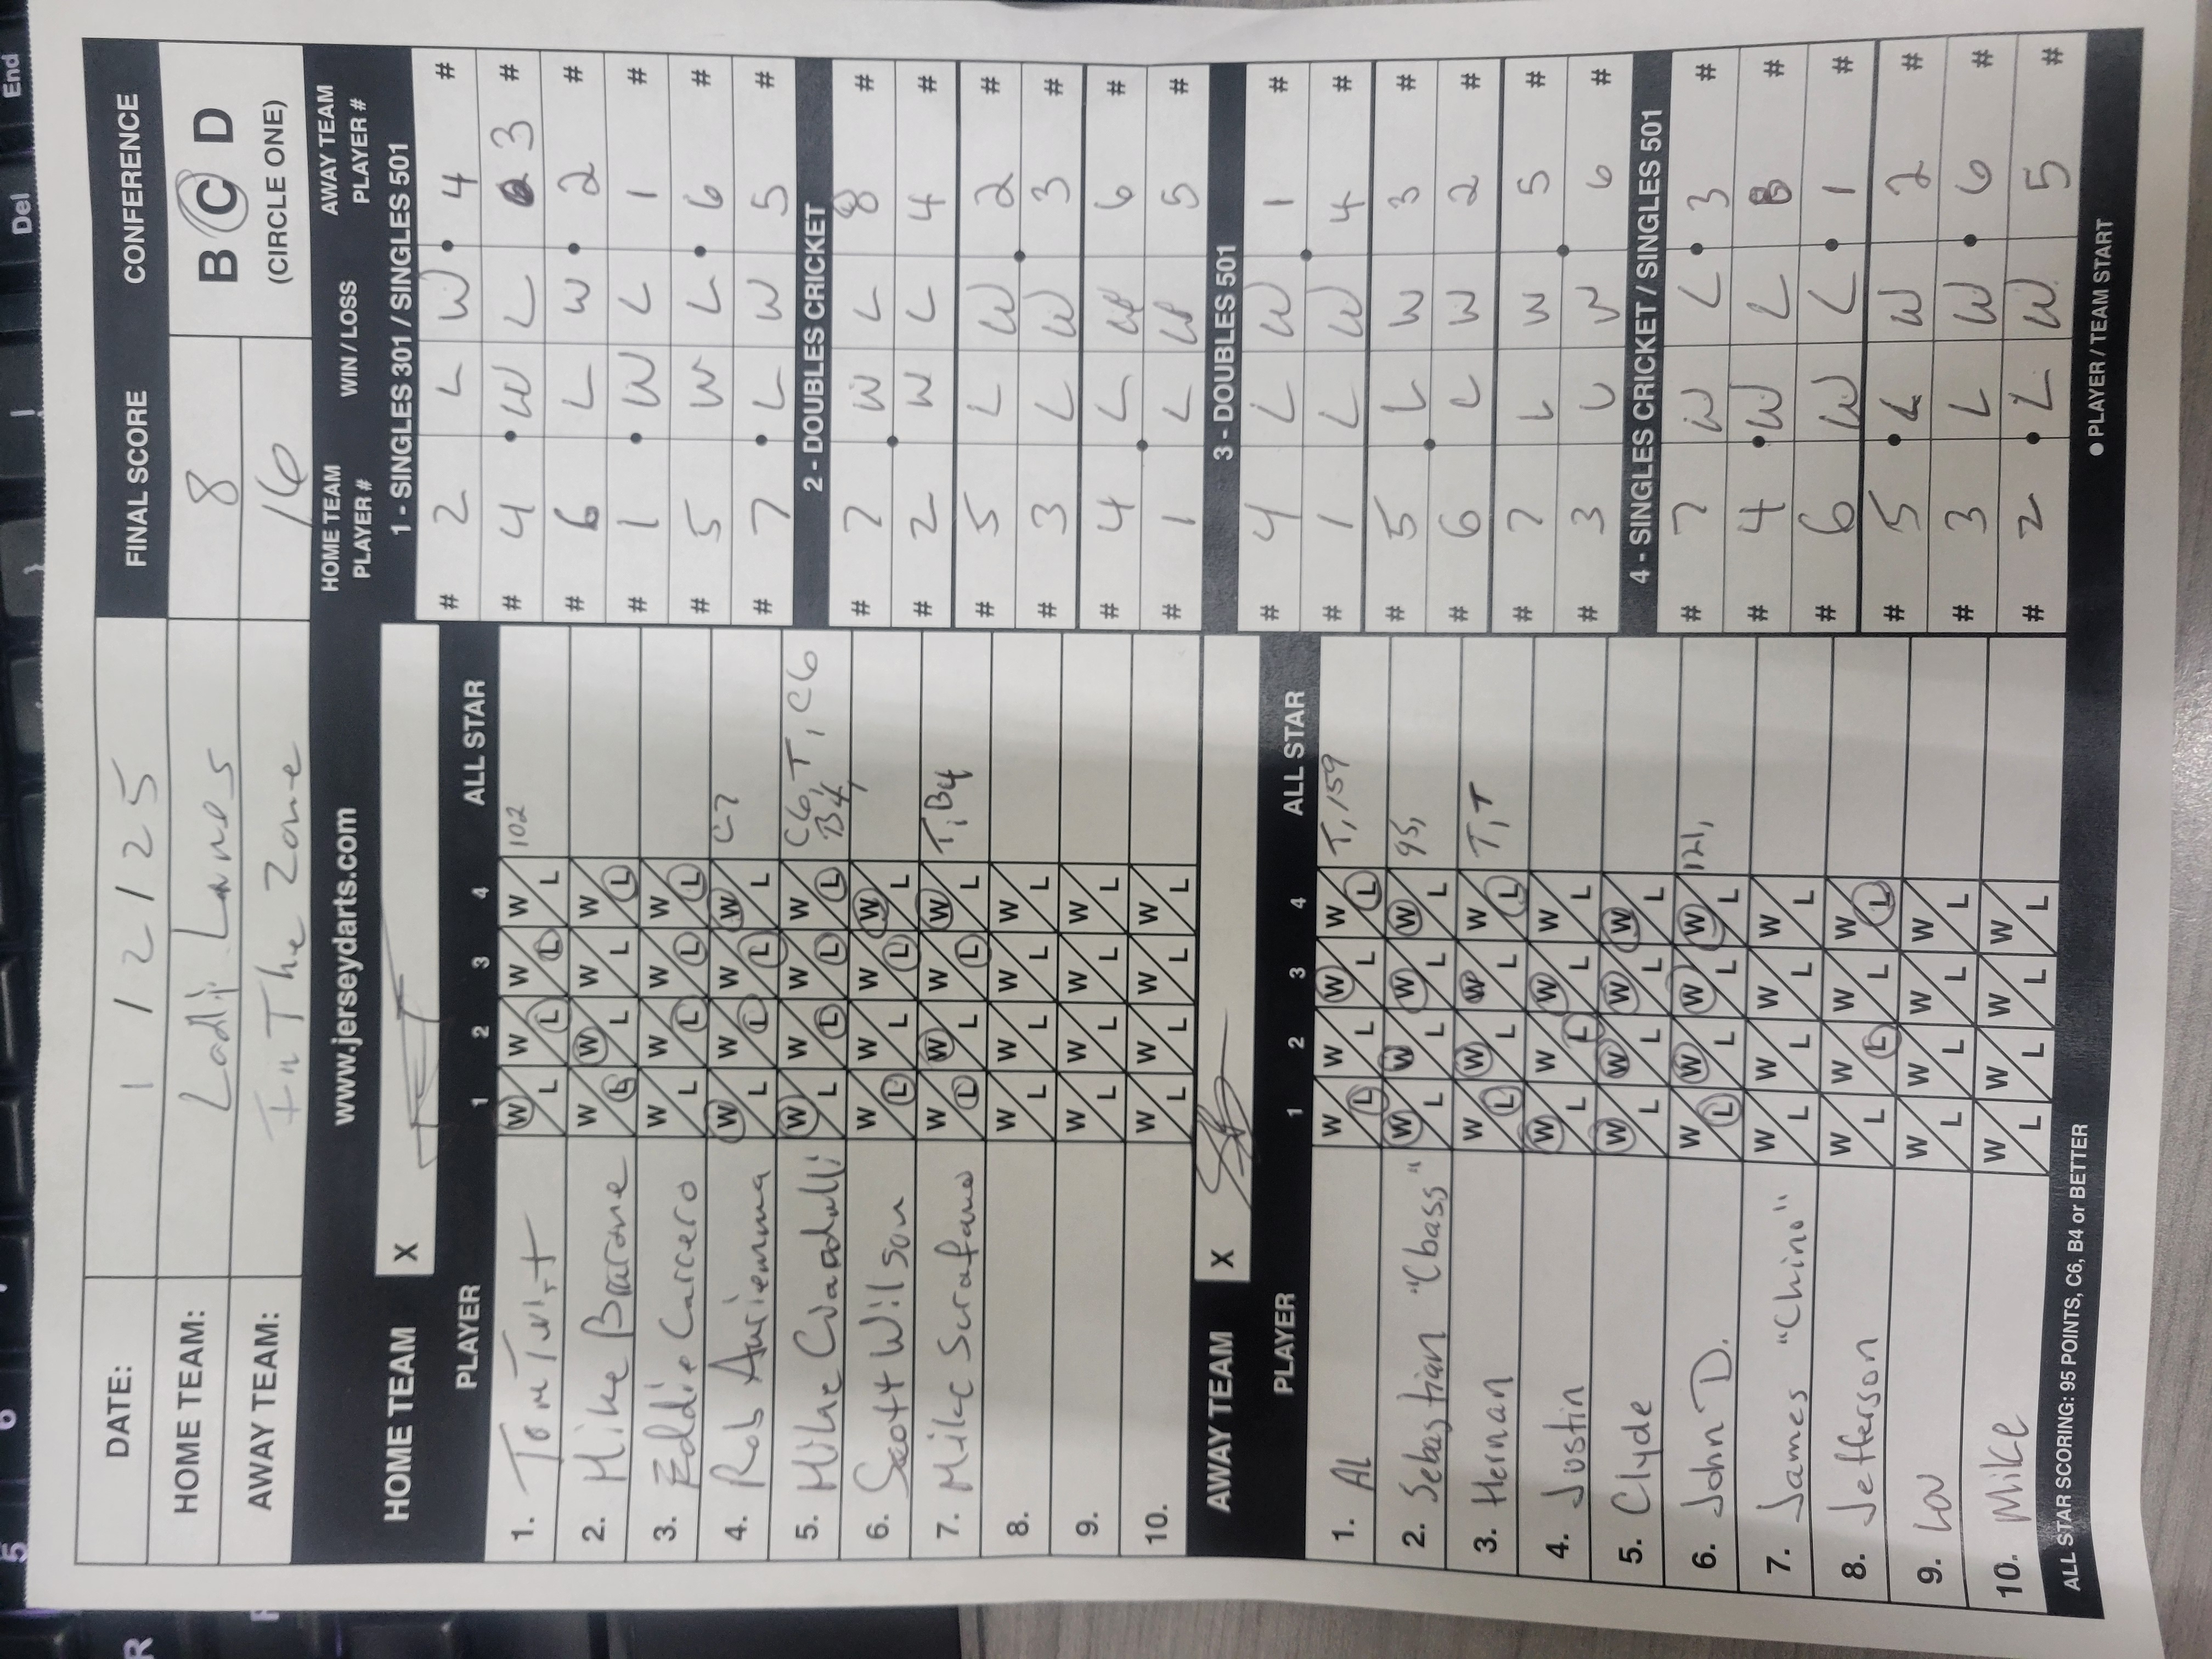 DATE: 1 / 2 / 25 FINAL SCORE CONFERENCE
HOME TEAM: Lodi Lanes 8 B C D
AWAY TEAM: In The Zone 16 (CIRCLE ONE)
www.jerseydarts.com
HOME TEAM X
PLAYER 1 2 3 4 ALL STAR
1. W L W L W L W L 102
2. Mike Barone W L W L W L W L
3. Eddie Carcero W L W L W L W L
4. Rob Auriemma W L W L W L W L C7
5. Mike W L W L W L W L C6, T, C6
B4,
6. Scott Wilson W L W L W L W L
7. Mike Scrafano W L W L W L W L T, B4
8. W L W L W L W L
9. W L W L W L W L
10. W L W L W L W L
AWAY TEAM X
PLAYER 1 2 3 4 ALL STAR
1. AL W L W L W L W L T, 159
2. Sebastian "Cbass" W L W L W L W L 95,
3. Hernan W L W L W L W L T, T
4. Justin W L W L W L W L
5. Clyde W L W L W L W L
6. John D. W L W L W L W L 121,
7. James "Chino" W L W L W L W L
8. Jefferson W L W L W L W L
9. W L W L W L W L
10. Mike W L W L W L W L
ALL STAR SCORING: 95 POINTS, C6, B4 or BETTER
HOME TEAM PLAYER # WIN / LOSS AWAY TEAM PLAYER #
1 - SINGLES 301 / SINGLES 501
# 2 L W 4 #
# 4 W L 3 #
# 6 L W 2 #
# 1 W L 1 #
# 5 W L 6 #
# 7 L W 5 #
2 - DOUBLES CRICKET
# 7 W L 8 #
# 2 W L 4 #
# 5 L W 2 #
# 3 L W 3 #
# 4 L W 6 #
# 1 L W 5 #
3 - DOUBLES 501
# 4 L W 1 #
# 1 L W 4 #
# 5 L W 3 #
# 6 L W 2 #
# 7 L W 5 #
# 3 L W 6 #
4 - SINGLES CRICKET / SINGLES 501
# 7 W L 3 #
# 4 W L 8 #
# 6 W L 1 #
# 5 L W 2 #
# 3 L W 6 #
# 2 L W 5 #
● PLAYER / TEAM START